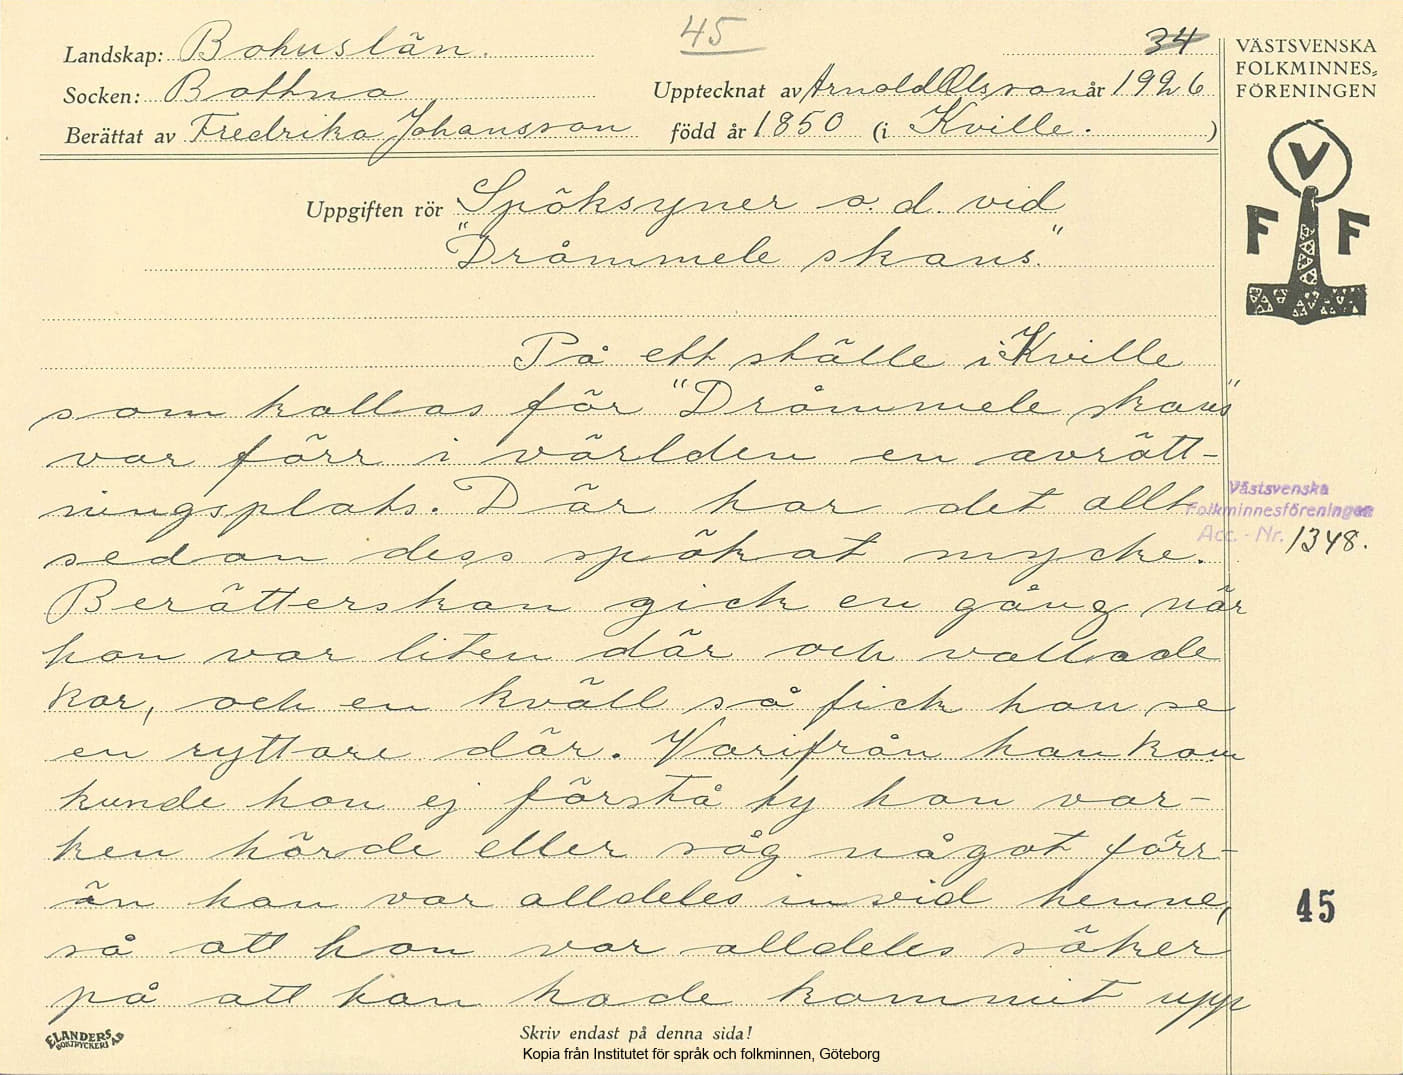 45
34
Landskap: Bohuslän.
Socken: Bottna
Upptecknat av Arnold Olsson år 1926
Berättat av Fredrika Johansson född år 1850 (i Kville.)
VÄSTSVENSKA
FOLKMINNES-
FÖRENINGEN
V
F F
Uppgiften rör Spöksyner o. d. vid
"Dråmmele skans."
På ett ställe i Kville
som kallas för "Dråmmele skans"
var förr i världen en avrätt-
ningsplats. Där har det allt
sedan dess spökat mycke.
Västsvenska
Folkminnesföreningen
Acc. - Nr. 1348.
Berätterskan gick en gång när
hon var liten där och vallade
kor, och en kväll så fick hon se
en ryttare där. Varifrån han kom
kunde hon ej förstå ty hon var-
ken hörde eller såg något förr-
än han var alldeles invid henne,
så att hon var alldeles säker
på att han hade kommit upp
45
ELANDERS
BOKTRYCKERI AB
Skriv endast på denna sida!
Kopia från Institutet för språk och folkminnen, Göteborg